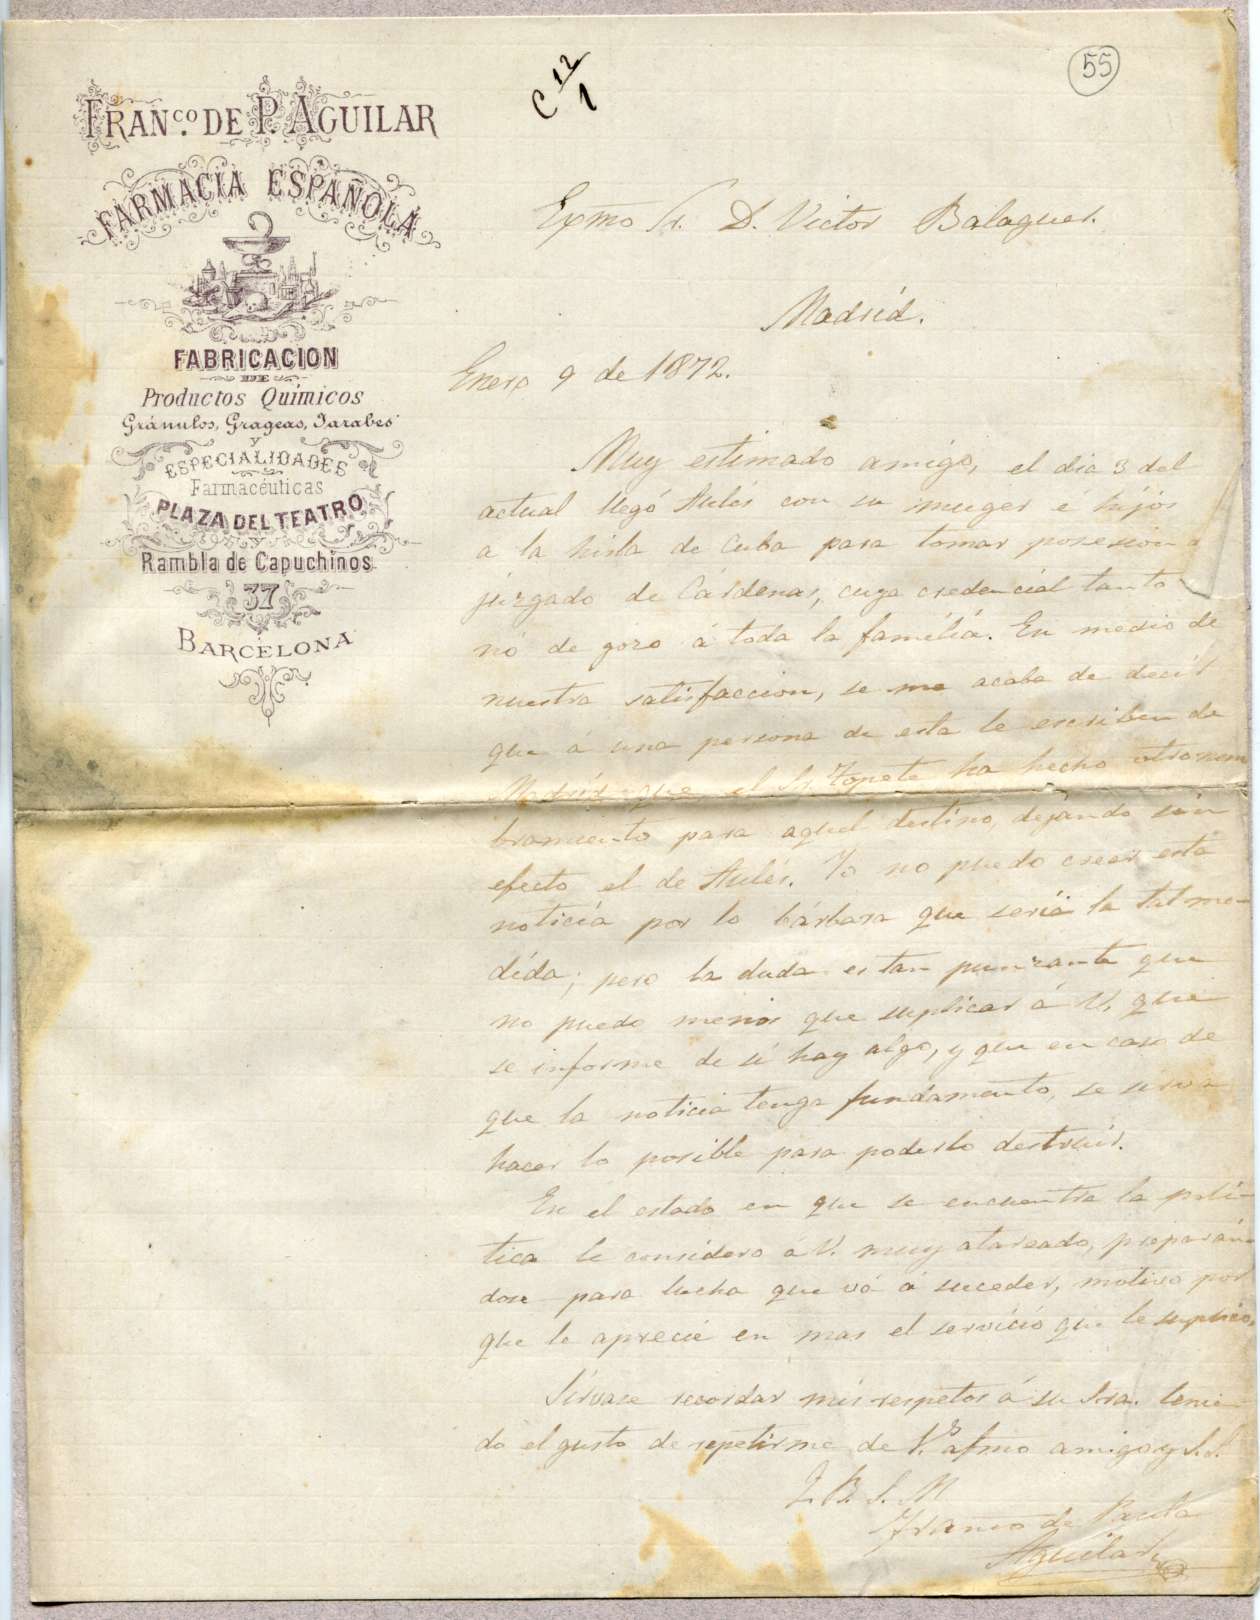 C 12/1
55
FRANco. DE P. AGUILAR
FARMACIA ESPAÑOLA
FABRICACION
DE
Productos Químicos
Gránulos, Grageas, Jarabes
y
ESPECIALIDADES
Farmacéuticas
PLAZA DEL TEATRO
Y
Rambla de Capuchinos
37
BARCELONA
Exmo Sr. D. Victor Balaguer.
Madrid.
Enero 9 de 1872.
Muy estimado amigo, el dia 3 del
actual llegó Aulés con su muger é hijos
a la hisla de Cuba para tomar posesion
juzgado de Cárdenas, cuya credencial tanto
nó de gozo á toda la família. En medio de
nuestra satisfaccion, se me acaba de decir
que á una persona de esta le escriben de
Madrid que el Sr. Topete ha hecho otro nom
bramiento para aquel destino, dejando sin
efecto el de Aulés. Yo no puedo creer esta
noticia por lo bárbara que seria la tal me-
dida; pero la duda es tan punzante que
no puedo menos que suplicar á V. que
se informe de si hay algo, y que en caso de
que la noticia tenga fundamento, se sirva
hacer lo posible para poderlo destruir.
En el estado en que se encuentra la polí-
tica le considero á V. muy atareado, preparán-
dose para lucha que vá á suceder, motivo por
que le aprecie en mas el servicio que le suplico.
Sírvase recordar mis respetos á su Sra. tenien-
do el gusto de repetirme de V. afmo amigo y S.S.
Q. B. S. M
Franco de Paula
Aguilar